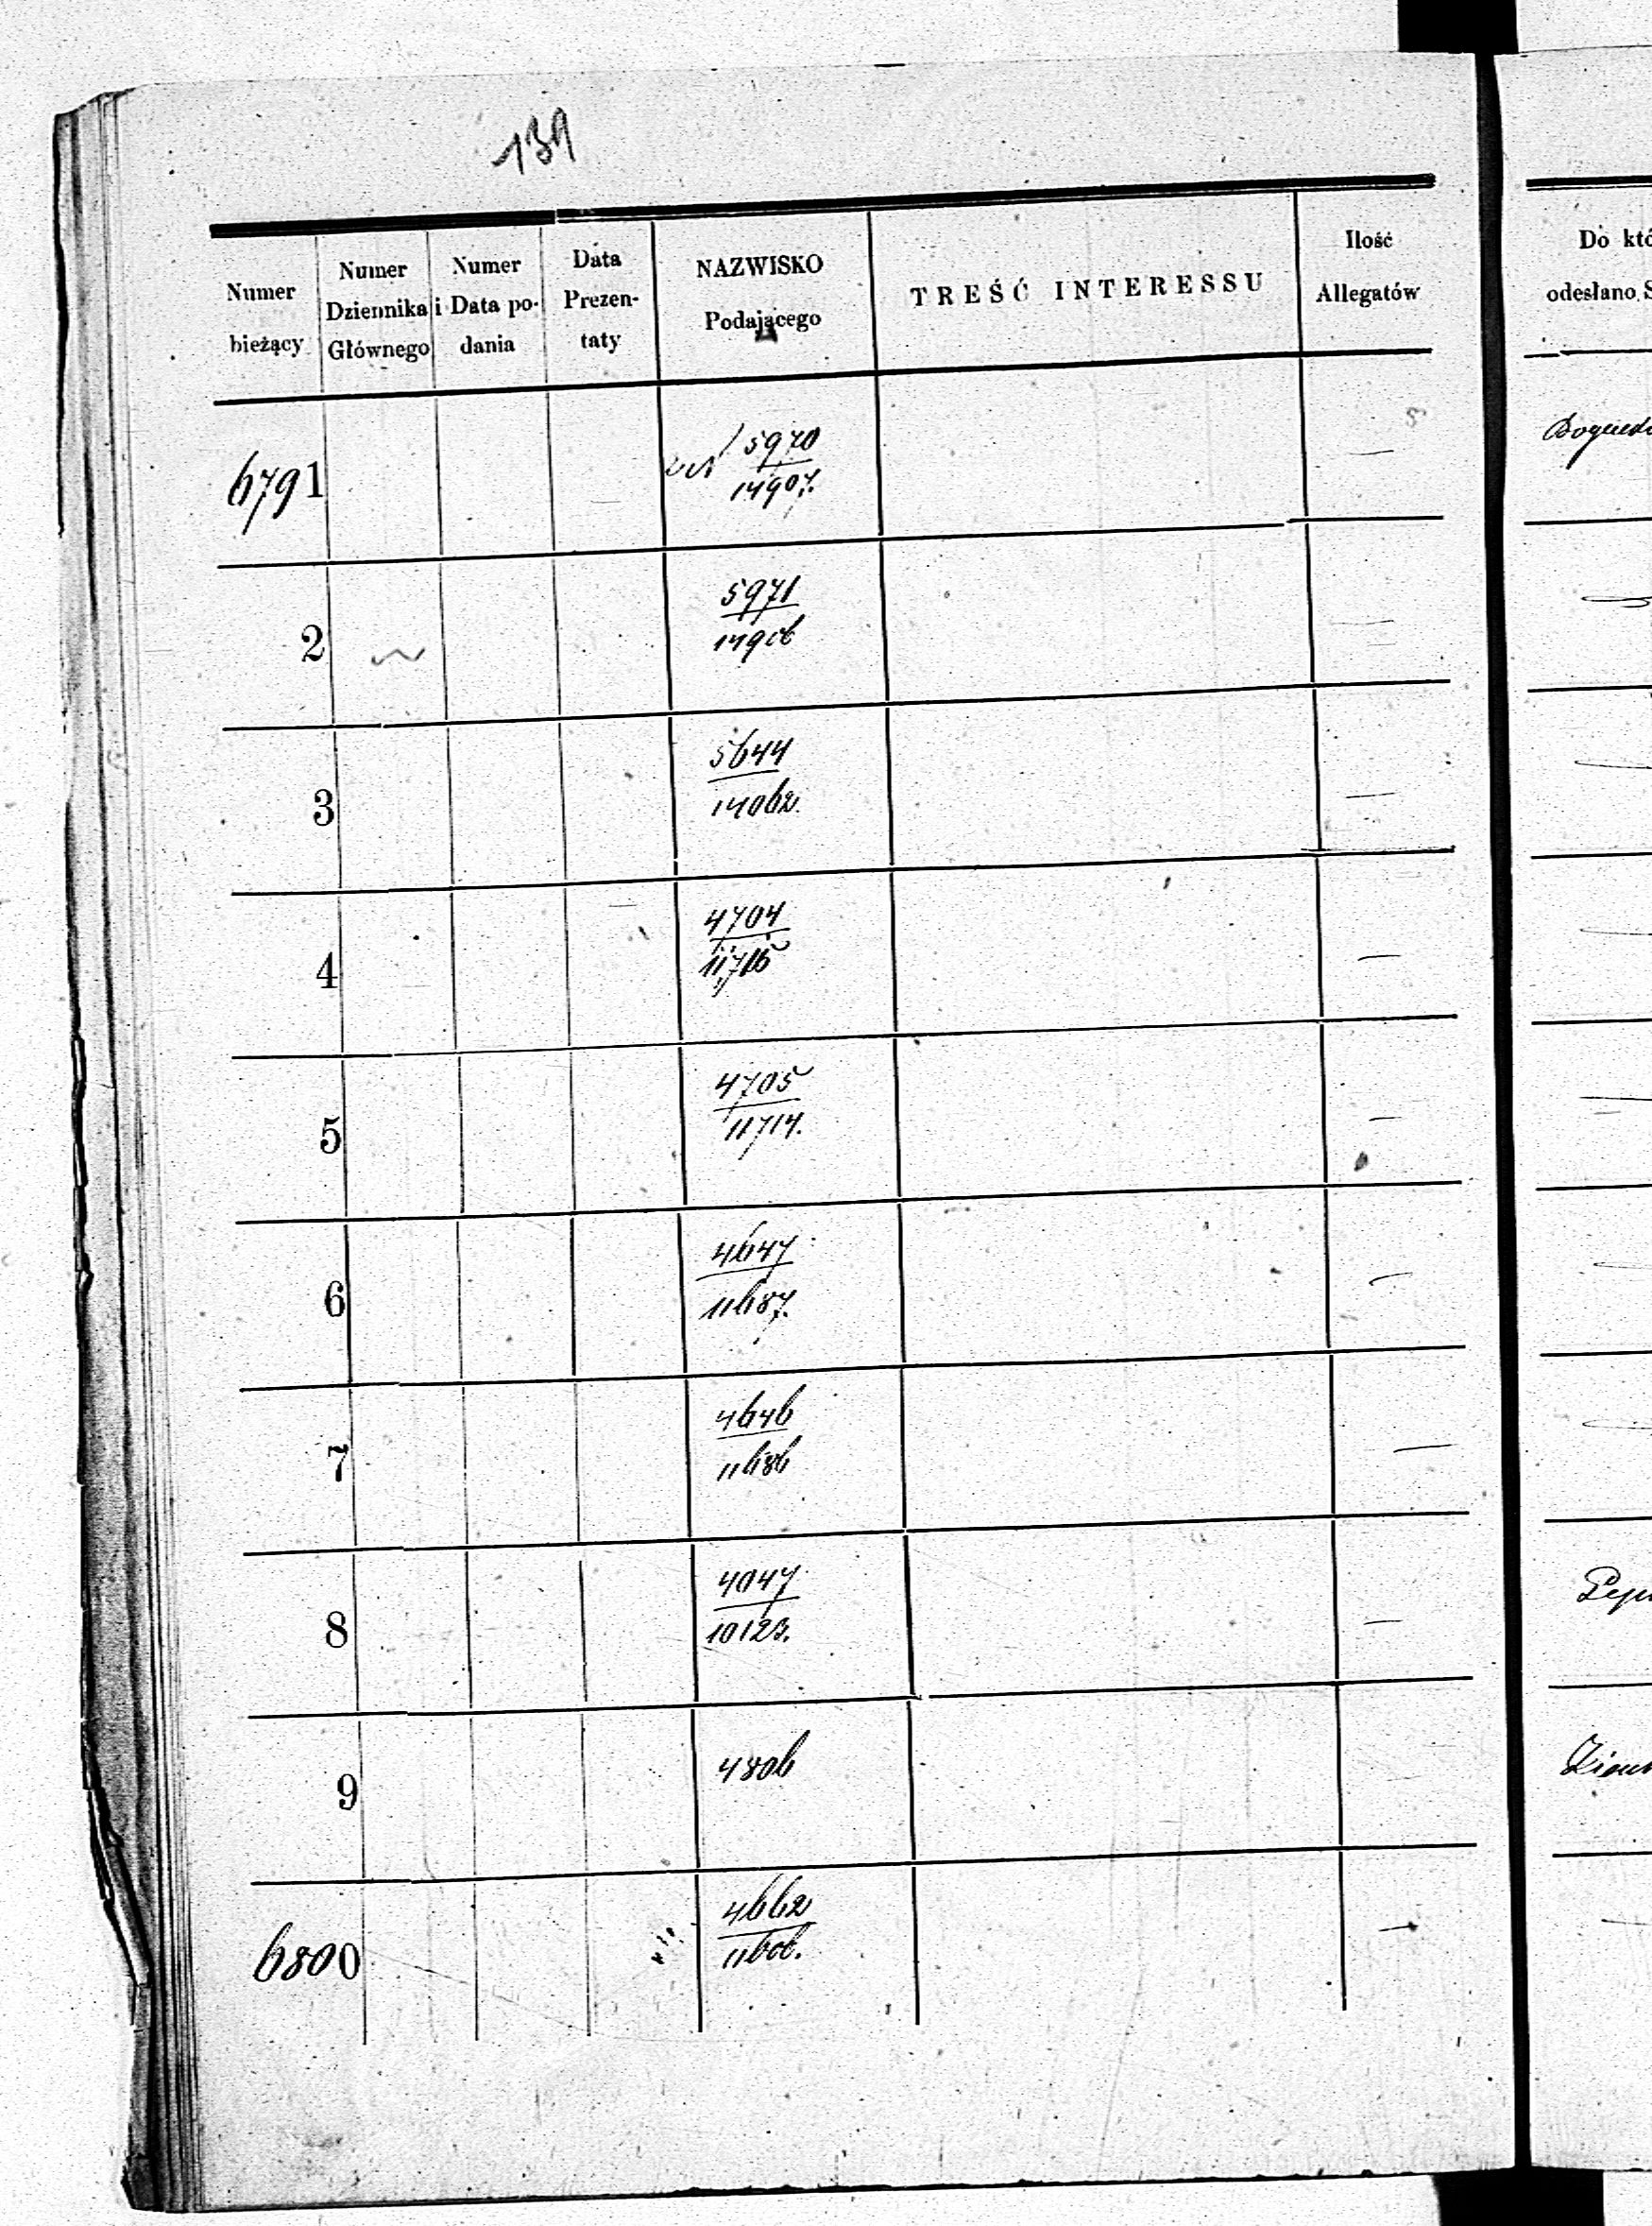 139
Numer bieżący
Numer Dziennika Głównego
Numer i Data podania
Data Prezentaty
NAZWISKO Podającego
TREŚĆ INTERESSU
Ilość Allegatów
Do któ
odesłano S
6791
5970
14907.
2
5971
14906
3
5644
14062.
4
4704
11715
5
4705
11714.
6
4647
11687.
7
4646
11686
8
4047
10123.
9
4806
6800
4662
11606.